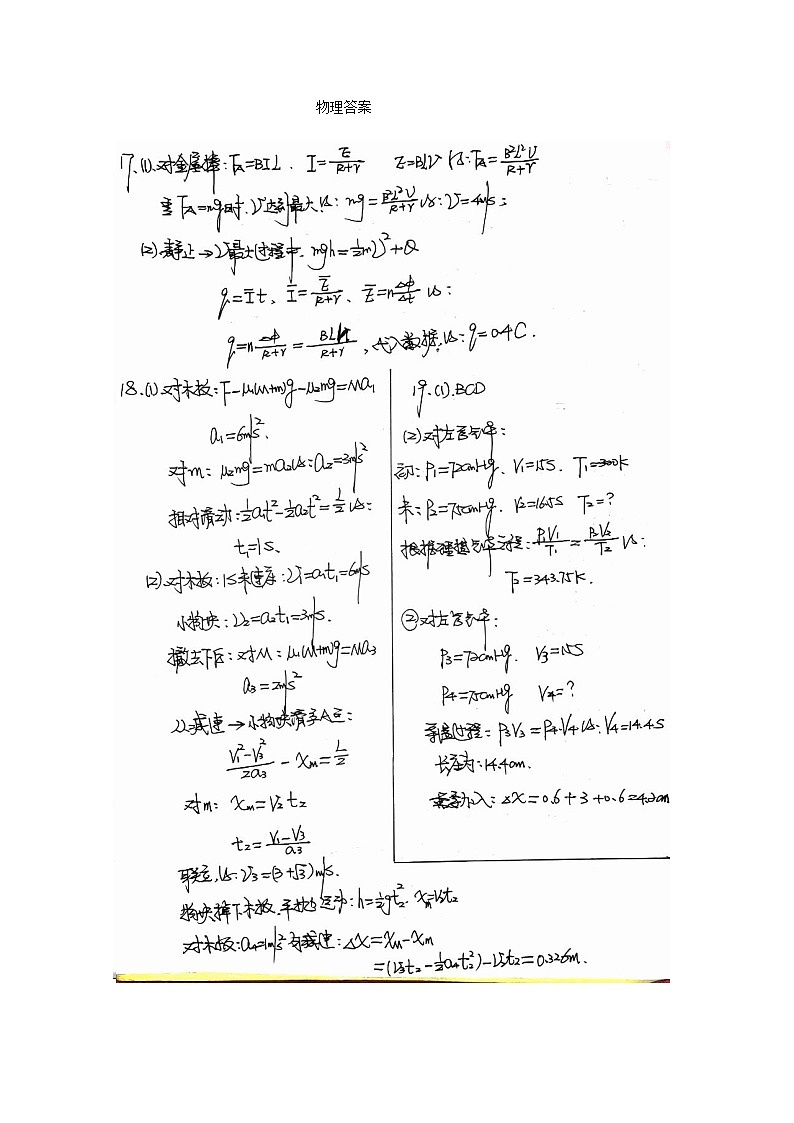 物理答案
17.(1).对金属棒:F_A=BIL. I=E/(R+r) E=BLV 得:F_A=B²L²V/(R+r)
当F_A=mg时.V达到最大.得:mg=B²L²V/(R+r) 得:V=4m/s;
(2).静止→V最大过程中. mgh=½mV²+Q
q=Īt、Ī=Ē/(R+r)、Ē=nΔΦ/Δt 得:
q=nΔΦ/(R+r)=BLh/(R+r),代入数据.得:q=0.4C.
18.(1).对木板:F-μ₁(M+m)g-μ₂mg=Ma₁
a₁=6m/s².
对m:μ₂mg=ma₂得:a₂=3m/s²
相对滑动:½a₁t²-½a₂t²=L/2得:
t₁=1s.
(2).对木板:1s末速度:V₁=a₁t₁=6m/s
小物块:V₂=a₂t₁=3m/s.
撤去F后:对M:μ₁(M+m)g=Ma₃
a₃=2m/s²
以减速→小物块滑至A点:
(V₁²-V₃²)/2a₃-Xm=L/2
对m:Xm=V₂t₂
t₂=(V₁-V₃)/a₃
联立,得:V₃=(3+√3)m/s.
物块掉下木板.平抛运动:h=½gt₂². Xm=V₂t₂
对木板:a₄=1m/s² 减速:ΔX=X_M-Xm
=(V₃t₂-½a₄t₂²)-V₂t₂=0.326m.
19.(1).BCD
(2)对左管气体:
初:P₁=72cmHg、V₁=15S. T₁=300K
末:P₂=75cmHg、V₂=16.5S T₂=?
根据理想气体方程:P₁V₁/T₁=P₂V₂/T₂得:
T₂=343.75K.
②对左管气体:
P₃=72cmHg. V₃=15S
P₄=75cmHg V₄=?
等温过程:P₃V₃=P₄V₄得:V₄=14.4S
长度为:14.4cm.
加入:ΔX=0.6+3+0.6=4.2cm